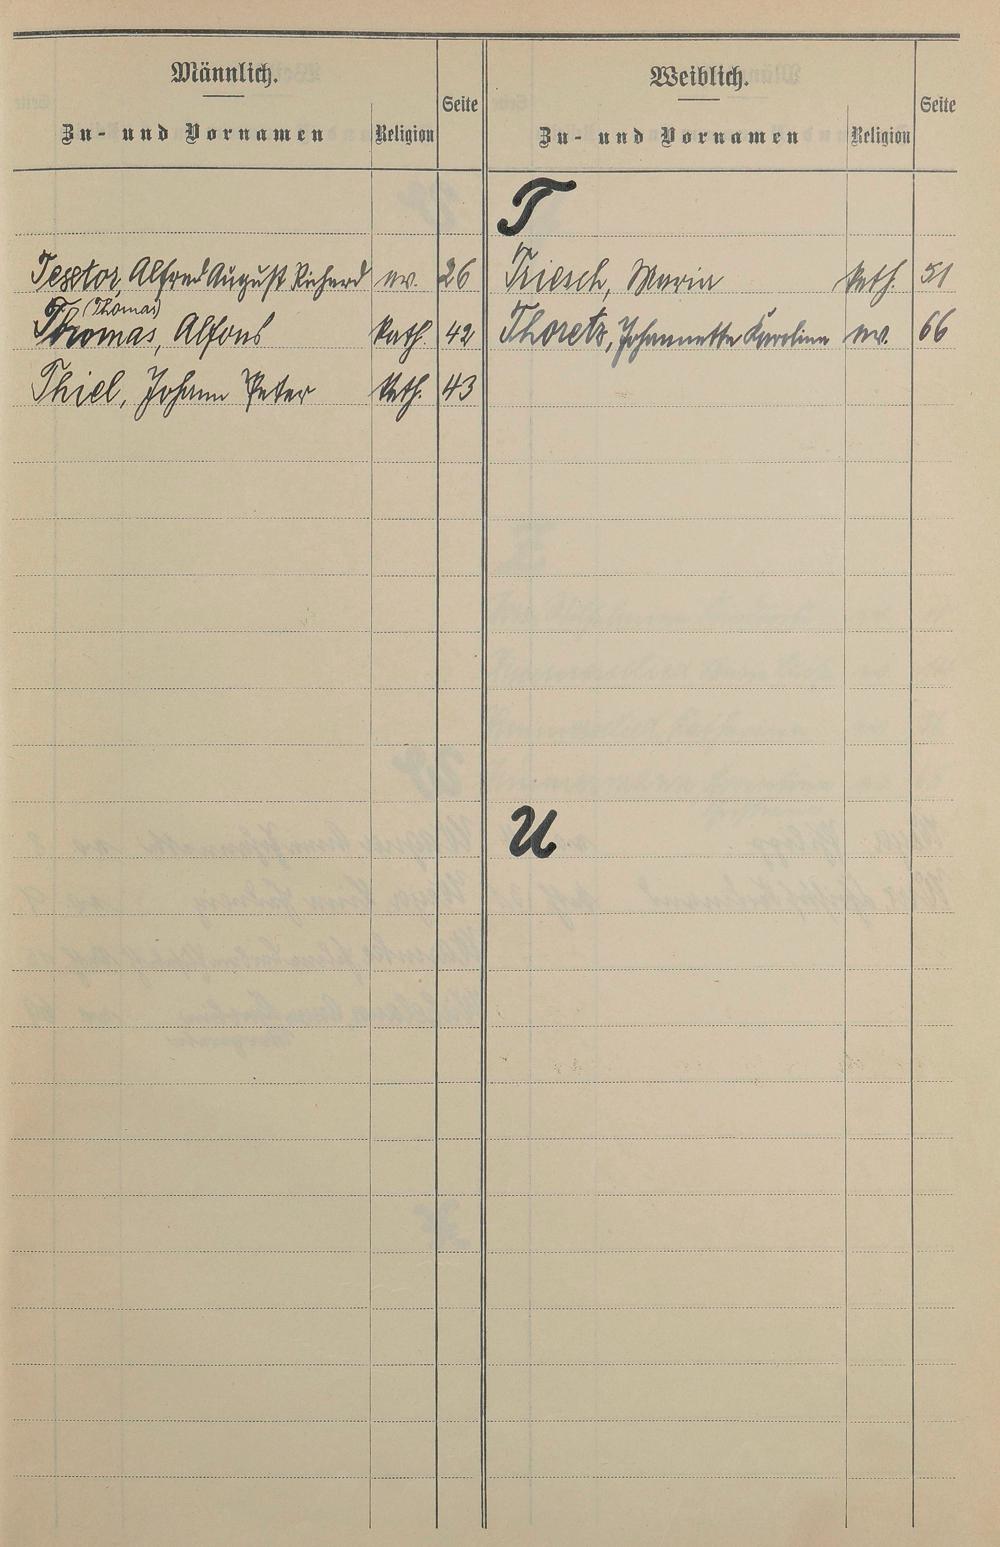 Männlich.
Zu- und Vornamen Religion Seite
Weiblich.
Zu- und Vornamen Religion Seite
T
Alfred August Richard ev. 26
(Thomas)
Thomas, Alfons kath. 42
Thiel, Johann Peter kath. 43
Triesch, Maria kath. 51
Thoretz, Johannette Karoline ev. 66
U